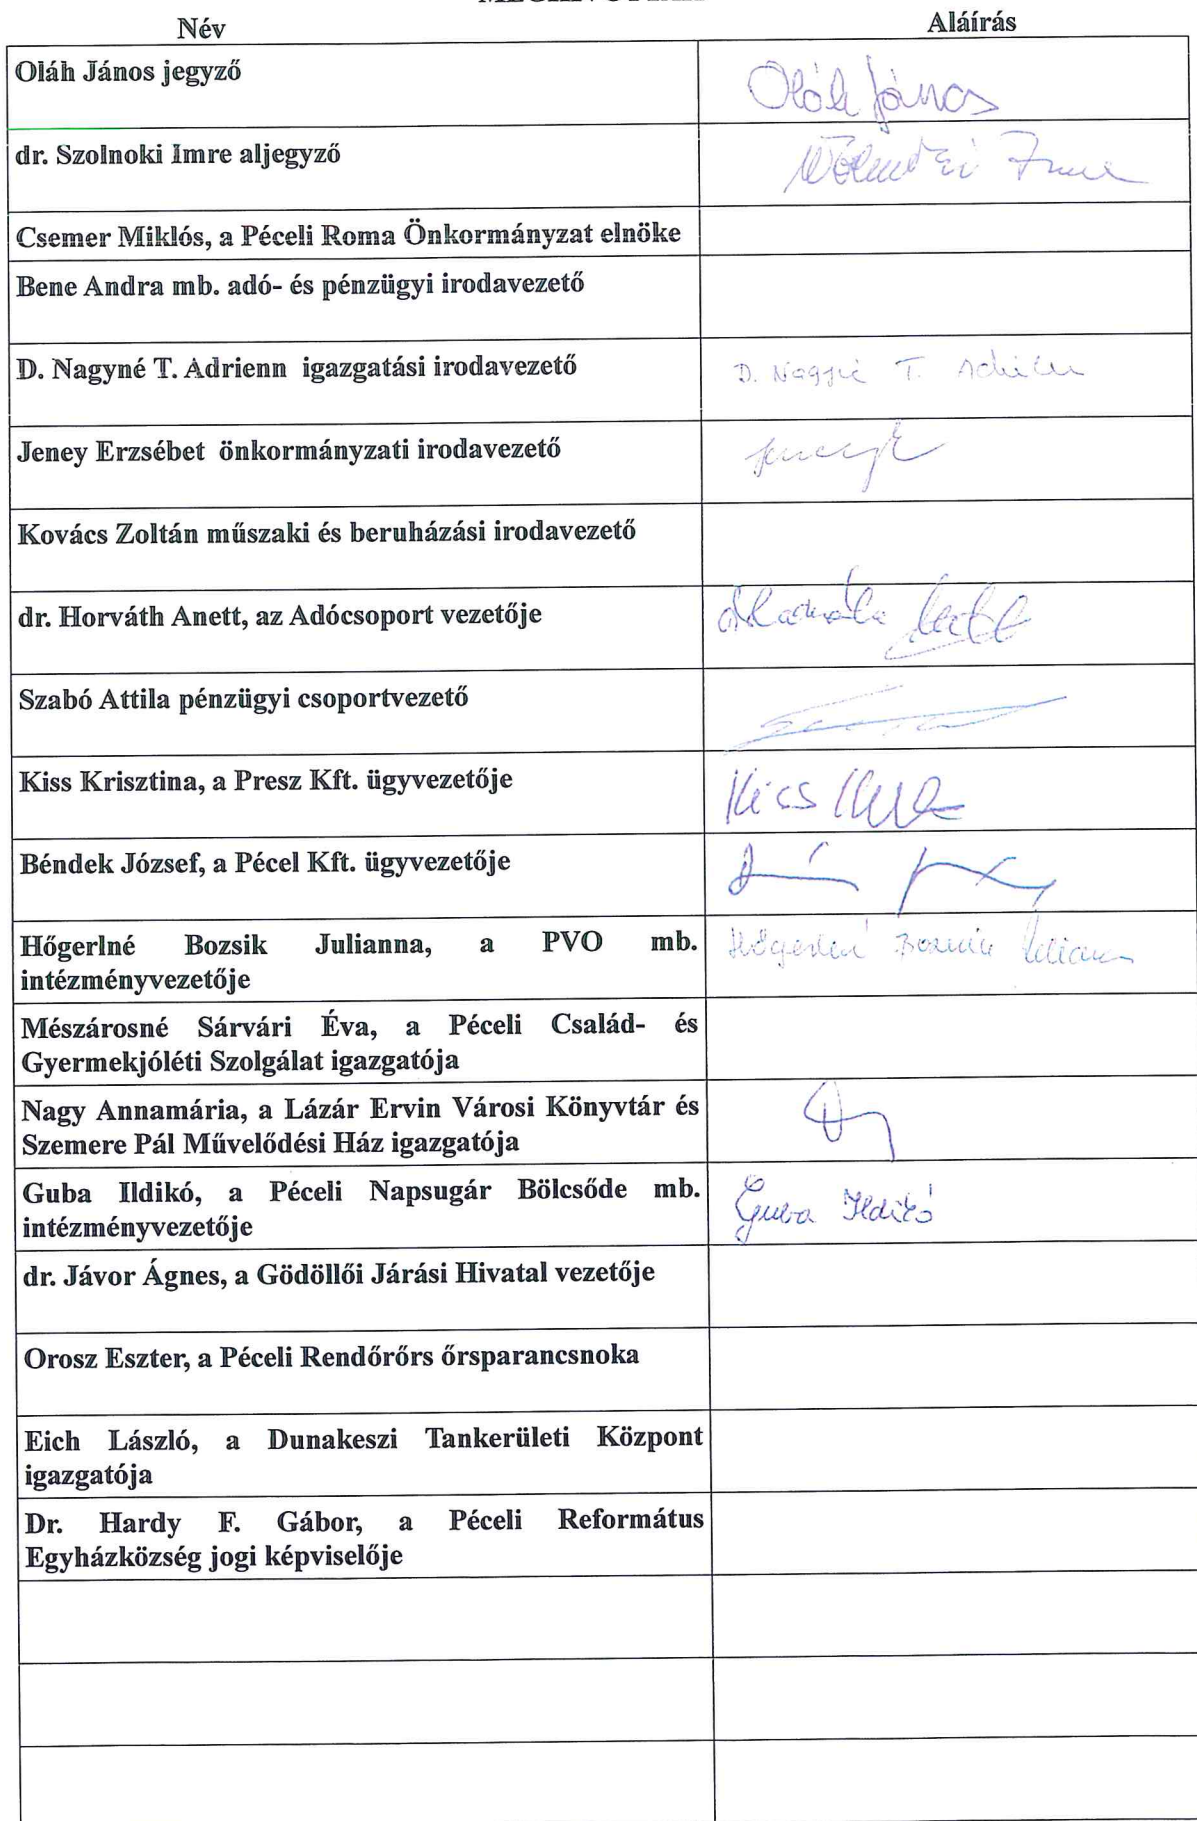 Név Aláírás
Oláh János jegyző Oláh János
dr. Szolnoki Imre aljegyző Imre
Csemer Miklós, a Péceli Roma Önkormányzat elnöke
Bene Andra mb. adó- és pénzügyi irodavezető
D. Nagyné T. Adrienn igazgatási irodavezető D. Nagyné T. Adrienn
Jeney Erzsébet önkormányzati irodavezető
Kovács Zoltán műszaki és beruházási irodavezető
dr. Horváth Anett, az Adócsoport vezetője
Szabó Attila pénzügyi csoportvezető
Kiss Krisztina, a Presz Kft. ügyvezetője Kiss
Béndek József, a Pécel Kft. ügyvezetője
Hőgerlné Bozsik Julianna, a PVO mb. Hőgerlné Bozsik Julianna
intézményvezetője
Mészárosné Sárvári Éva, a Péceli Család- és
Gyermekjóléti Szolgálat igazgatója
Nagy Annamária, a Lázár Ervin Városi Könyvtár és
Szemere Pál Művelődési Ház igazgatója
Guba Ildikó, a Péceli Napsugár Bölcsőde mb. Guba Ildikó
intézményvezetője
dr. Jávor Ágnes, a Gödöllői Járási Hivatal vezetője
Orosz Eszter, a Péceli Rendőrőrs őrsparancsnoka
Eich László, a Dunakeszi Tankerületi Központ
igazgatója
Dr. Hardy F. Gábor, a Péceli Református
Egyházközség jogi képviselője